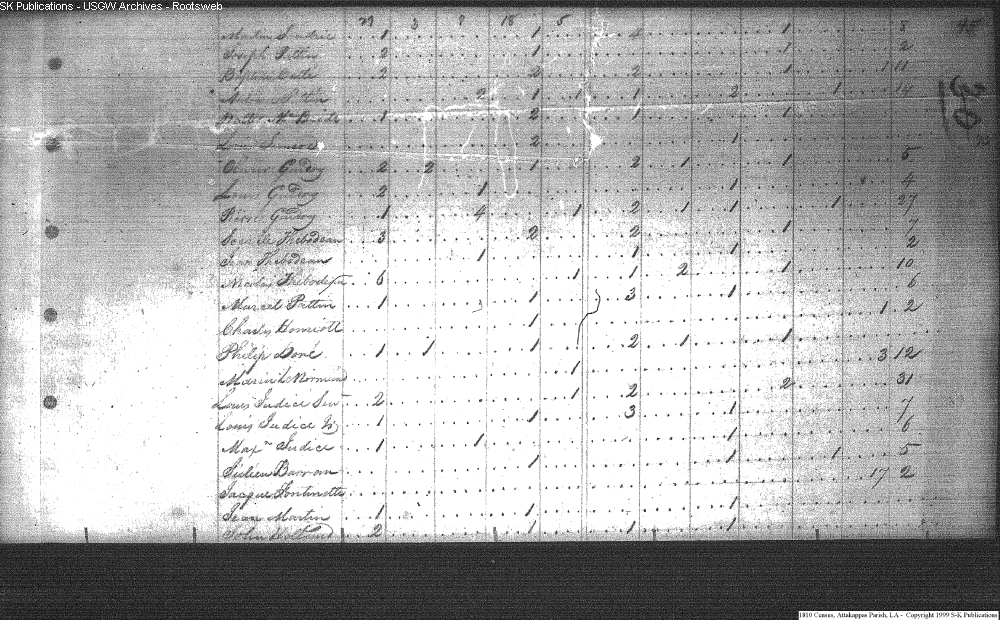 SK Publications - USGW Archives - Rootsweb
29 3 8 18 5 45
Martin Judice 1 1 4 1 8
Joseph Pettin 2 1 1 2
2 2 2 1 1 11
2 1 1 1 2 1 14
1 2 1 1 1
2 1
Olivier Guidry 2 2 1 2 1 1 5
Louis Guidry 2 1 1 4
Pierre Guidry 1 4 1 2 1 1 1 27
Thebodeau 3 2 2 1 7
Jean Thebodeau 1 1 1 2
Nicolas Thebodeau 6 1 1 2 1 10
Marcel Pettin 1 1 3 1 6
Charly 1 1 2
Philip Doré 1 1 1 2 1 1
Normand 1 3 12
Louis Judice Senr 2 1 2 2 31
Louis Judice Jr 1 1 3 1 7
Maxn Judice 1 1 1 6
Julien Barran 1 1 1 5
Jacque Fontinette 17 2
Jean Martin 1 1 1
John Holland 2 1 1 1
1810 Census, Attakappas Parish, LA - Copyright 1999 S-K Publications